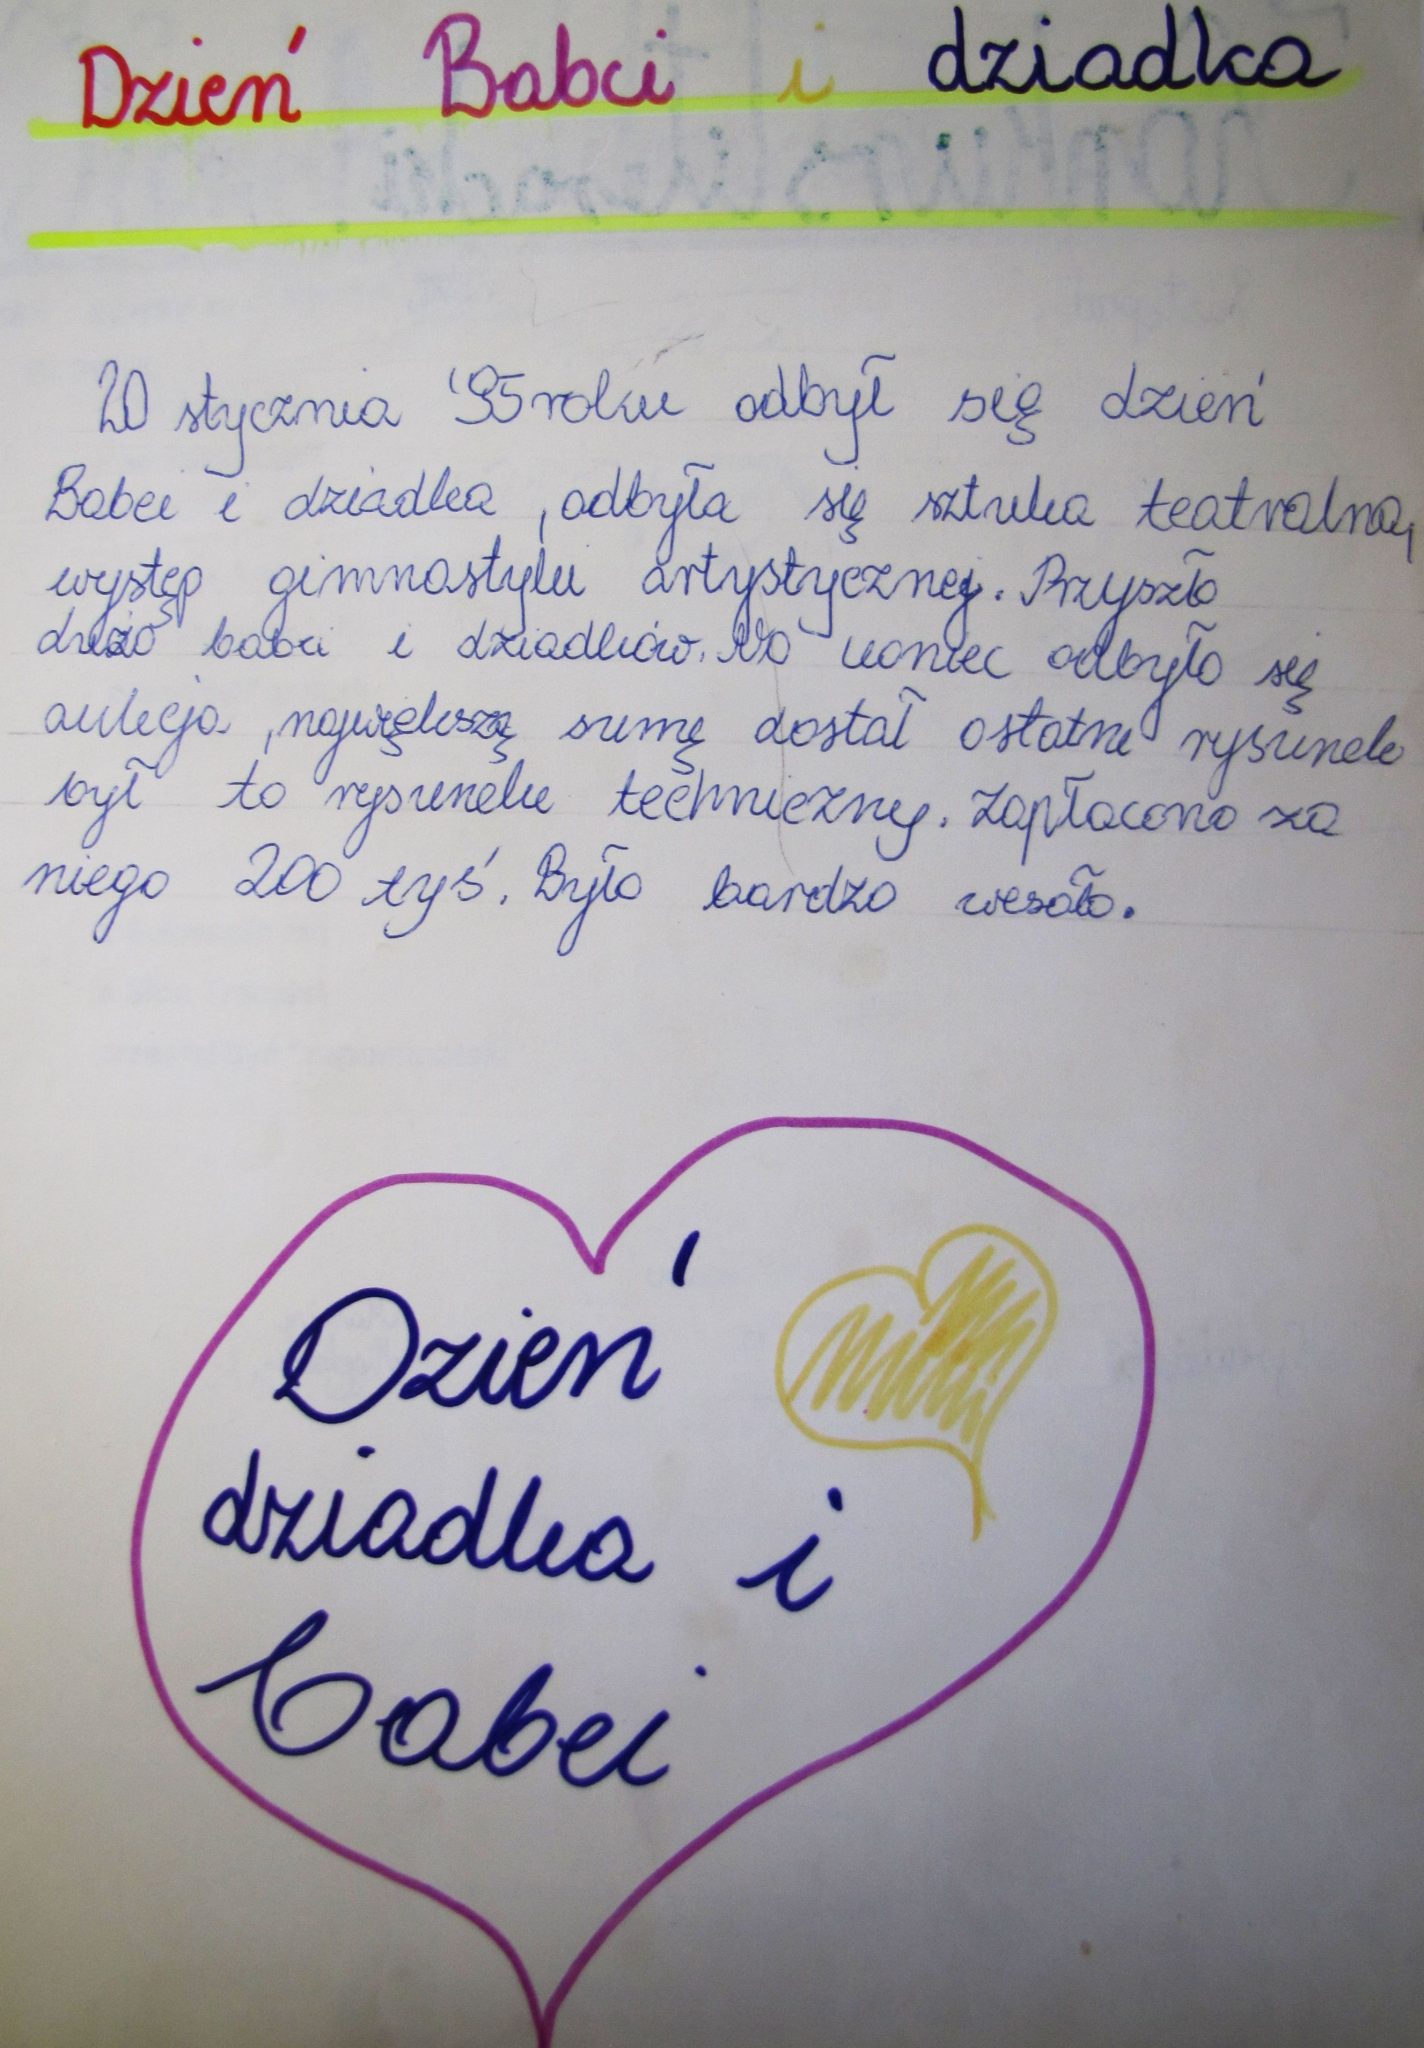 Dzień Babci i dziadka
20 stycznia '95 roku odbył się dzień
Babci i dziadka, odbyła się sztuka teatralna,
występ gimnastyki artystycznej. Przyszło
dużo babci i dziadków. Na koniec odbyło się
aukcja, największą sumę dostał ostatni rysunek
był to rysunek techniczny. Zapłacono za
niego 200 tyś. Było bardzo wesoło.
Dzień
dziadka i
babci